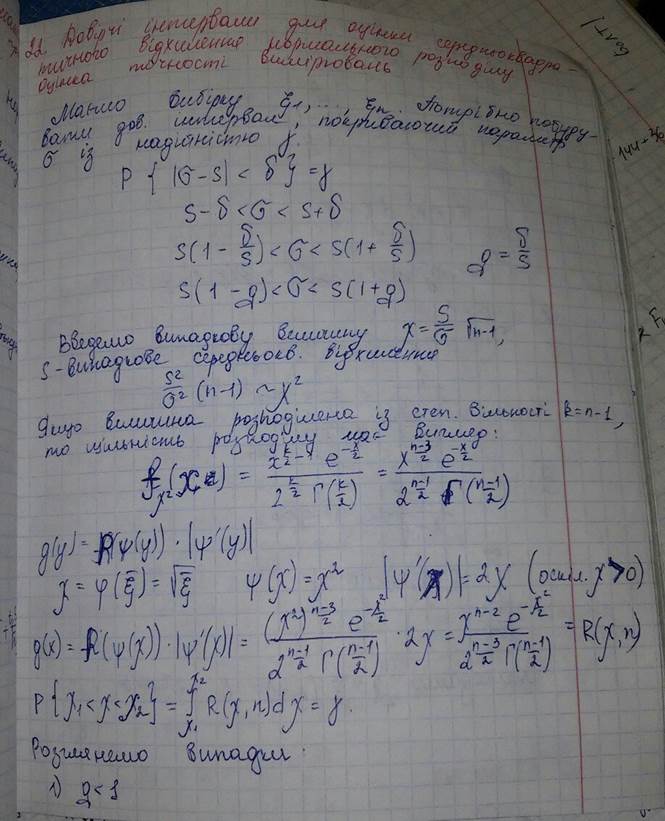 22. Довірчі інтервали для оцінки середньоквадра-
тичного відхилення нормального розподілу
оцінка точності вимірювань
Маємо вибірку ξ₁, ..., ξₙ. Потрібно побуду-
вати дов. інтервал, покриваючий параметр
σ із надійністю γ.
P{|σ-s| < δ} = γ
s-δ < σ < s+δ
s(1 - δ/s) < σ < s(1 + δ/s) q = δ/s
s(1-q) < σ < s(1+q)
Введемо випадкову величину χ = s/σ √(n-1),
s-випадкове середньокв. відхилення
s²/σ² (n-1) ~ χ²
Якщо величина розподілена із степ. вільності k=n-1,
то щільність розподілу має вигляд:
f_χ²(x) = x^(k/2-1) e^(-x/2) / (2^(k/2) Γ(k/2)) = x^((n-3)/2) e^(-x/2) / (2^((n-1)/2) Γ((n-1)/2))
g(y) = R(ψ(y)) · |ψ'(y)|
χ = φ(ξ) = √ξ ψ(χ) = χ² |ψ'(χ)| = 2χ (оскіл. χ>0)
g(χ) = R(ψ(χ)) · |ψ'(χ)| = (χ²)^((n-3)/2) e^(-χ²/2) / (2^((n-1)/2) Γ((n-1)/2)) · 2χ = χ^(n-2) e^(-χ²/2) / (2^((n-3)/2) Γ((n-1)/2)) = R(χ,n)
P{χ₁<χ<χ₂} = ∫_χ₁^χ₂ R(χ,n)dχ = γ.
Розглянемо випадки:
1) q<1
144